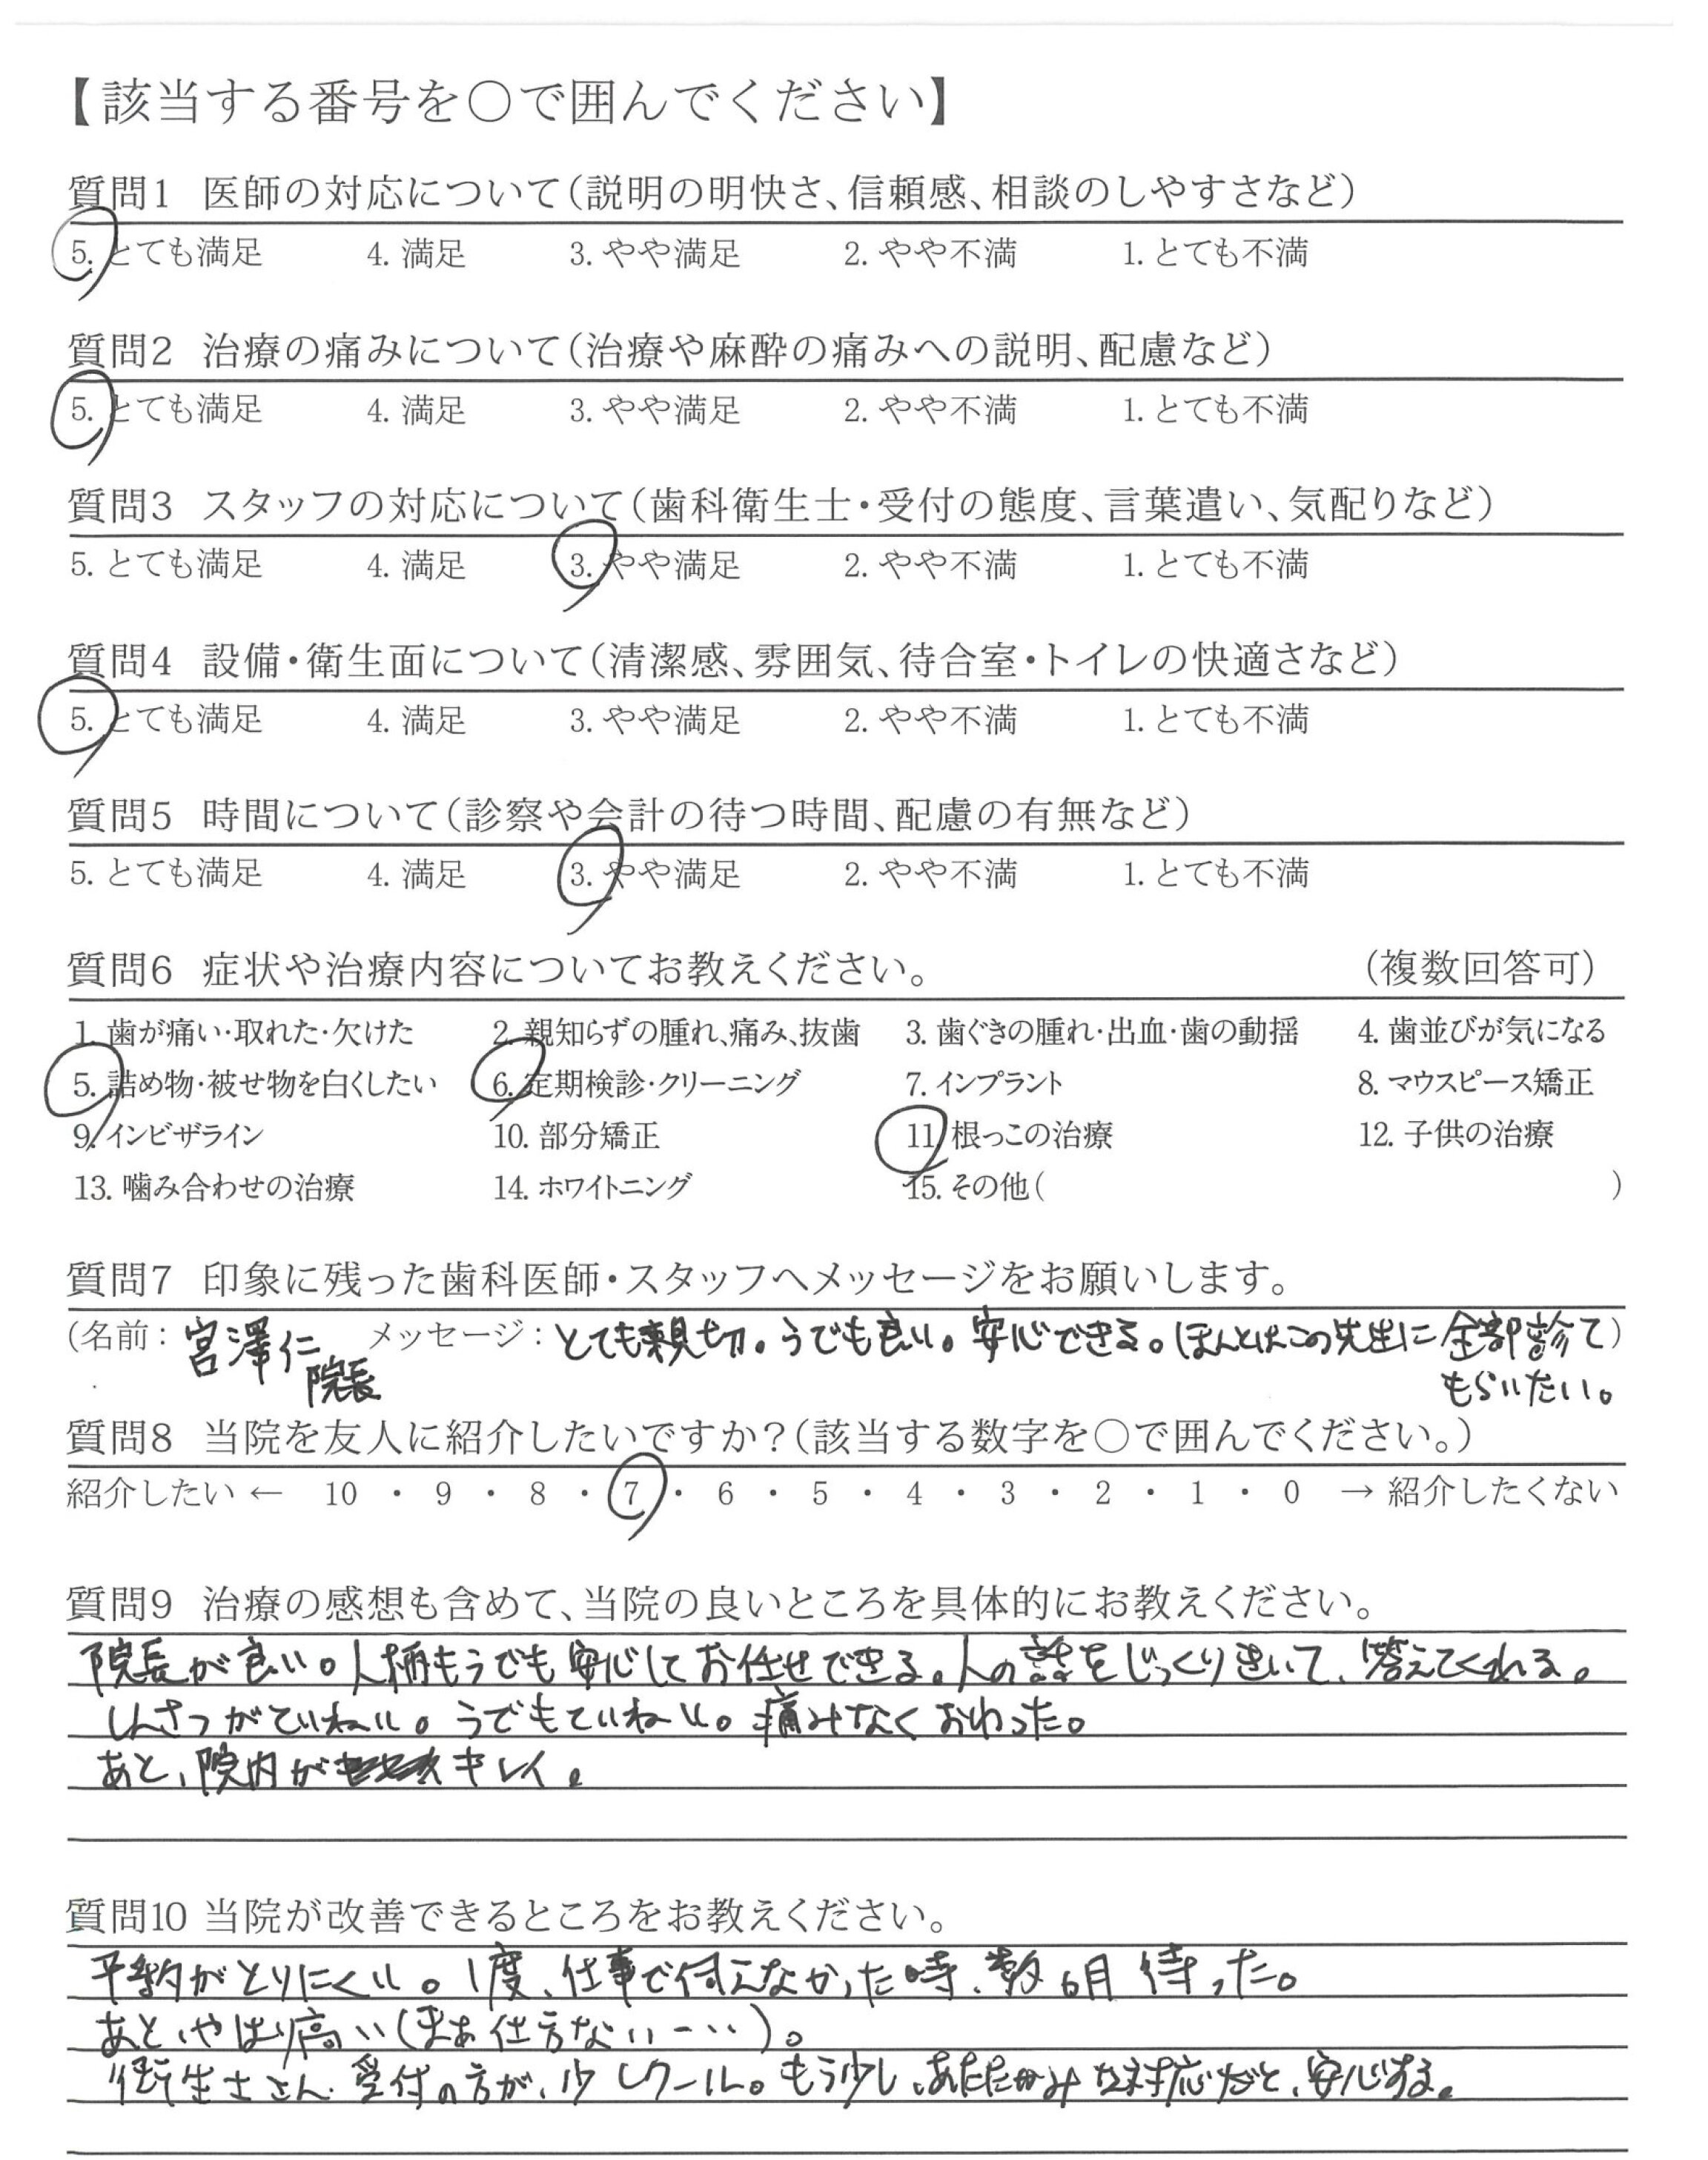 【該当する番号を○で囲んでください】
質問1 医師の対応について(説明の明快さ、信頼感、相談のしやすさなど)
5. とても満足 4. 満足 3. やや満足 2. やや不満 1. とても不満
質問2 治療の痛みについて(治療や麻酔の痛みへの説明、配慮など)
5. とても満足 4. 満足 3. やや満足 2. やや不満 1. とても不満
質問3 スタッフの対応について(歯科衛生士・受付の態度、言葉遣い、気配りなど)
5. とても満足 4. 満足 3. やや満足 2. やや不満 1. とても不満
質問4 設備・衛生面について(清潔感、雰囲気、待合室・トイレの快適さなど)
5. とても満足 4. 満足 3. やや満足 2. やや不満 1. とても不満
質問5 時間について(診察や会計の待つ時間、配慮の有無など)
5. とても満足 4. 満足 3. やや満足 2. やや不満 1. とても不満
質問6 症状や治療内容についてお教えください。 (複数回答可)
1. 歯が痛い・取れた・欠けた 2. 親知らずの腫れ、痛み、抜歯 3. 歯ぐきの腫れ・出血・歯の動揺 4. 歯並びが気になる
5. 詰め物・被せ物を白くしたい 6. 定期検診・クリーニング 7. インプラント 8. マウスピース矯正
9. インビザライン 10. 部分矯正 11. 根っこの治療 12. 子供の治療
13. 噛み合わせの治療 14. ホワイトニング 15. その他( )
質問7 印象に残った歯科医師・スタッフへメッセージをお願いします。
(名前: 宮澤仁 メッセージ: とても親切。うでも良い。安心できる。ほんとはこの先生に全部診て)
院長 もらいたい。
質問8 当院を友人に紹介したいですか?(該当する数字を○で囲んでください。)
紹介したい ← 10 ・ 9 ・ 8 ・ 7 ・ 6 ・ 5 ・ 4 ・ 3 ・ 2 ・ 1 ・ 0 → 紹介したくない
質問9 治療の感想も含めて、当院の良いところを具体的にお教えください。
院長が良い。人柄もうでも安心してお任せできる。人の話をじっくりきいて、答えてくれる。
しんさつがていねい。うでもていねい。痛みなくおわった。
あと、院内がキレイ。
質問10 当院が改善できるところをお教えください。
予約がとりにくい。1度、仕事で伺えなかった時、数ヶ月待った。
あと、やはり高い(まぁ仕方ないー…)。
衛生士さん、受付の方が、少しクール。もう少し、あたたかみな対応だと、安心する。